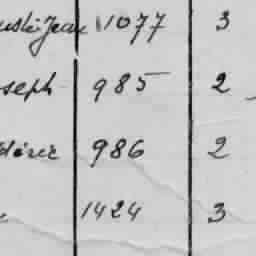 Jean 1077 3
seph 985 2
déric 986 2
1424 3